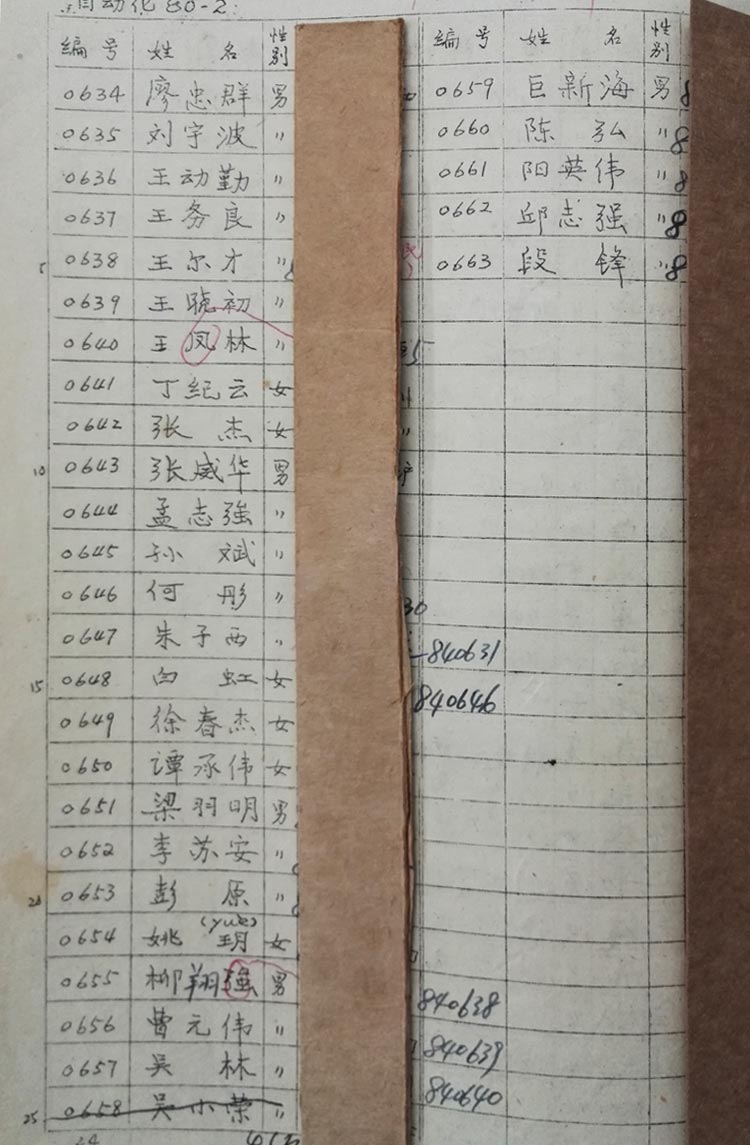 自动化80-2:
编号 姓名 性别
0634 廖忠群 男
0635 刘宇波 〃
0636 王动勤 〃
0637 王务良 〃
5 0638 王尔才 〃
0639 王晓初 〃
0640 王凤林 〃
0641 丁纪云 女
0642 张杰 女
10 0643 张威华 男
0644 孟志强 〃
0645 孙斌 〃
0646 何彤 〃
0647 朱子西 〃
15 0648 白虹 女
0649 徐春杰 女
0650 谭承伟 女
0651 梁羽明 男
0652 李苏安 〃
20 0653 彭原 〃
(yue)
0654 姚玥 女
0655 柳翔强 男
0656 曹元伟 〃
0657 吴林 〃
25 0658 吴小荣 〃
24
编号 姓名 性别
0659 巨新海 男 8
0660 陈弘 〃 8
0661 阳英伟 〃 8
0662 邱志强 〃 8
0663 段锋 〃 8
840631
840646
840638
840639
840640